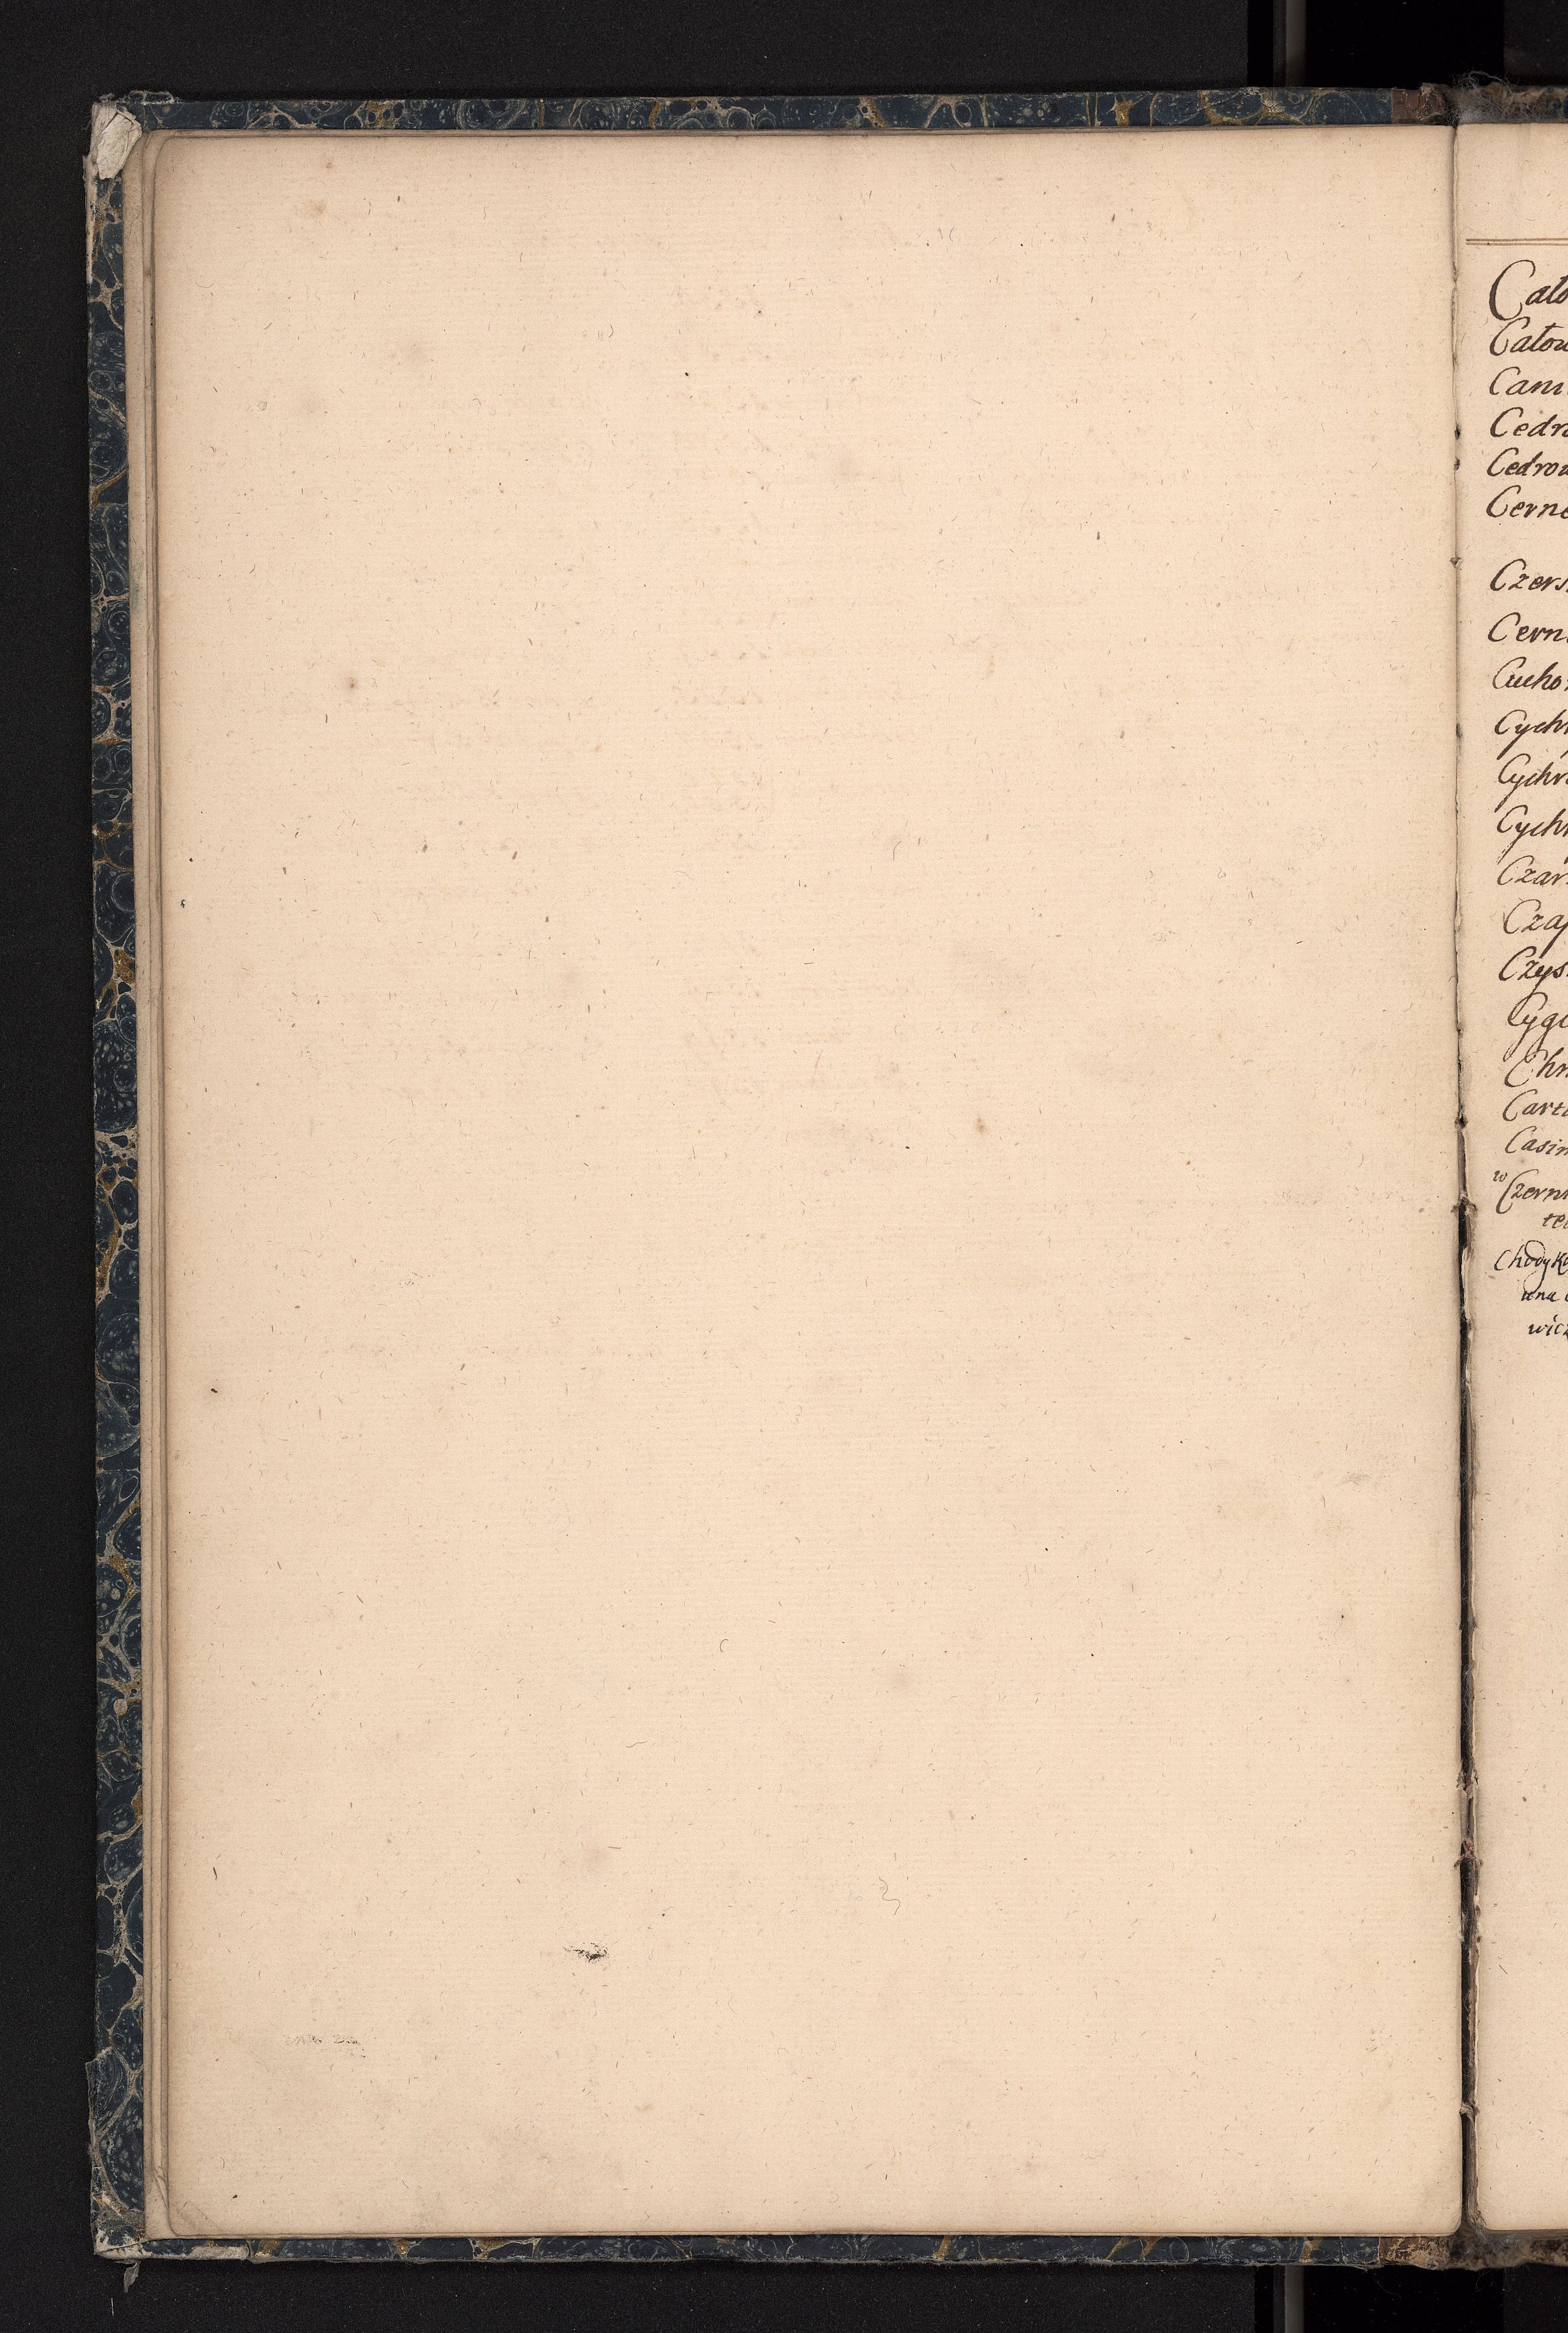 Cało
Całow
Cani
Cedro
Cedrow
Cerne
Czers
Cern
Cucho
Cychr
Cychr
Cychr
Czar
Czap
Czys
Cyga
Chr
Carto
Casim
w Czerni
te
Chodyk
una
wicz